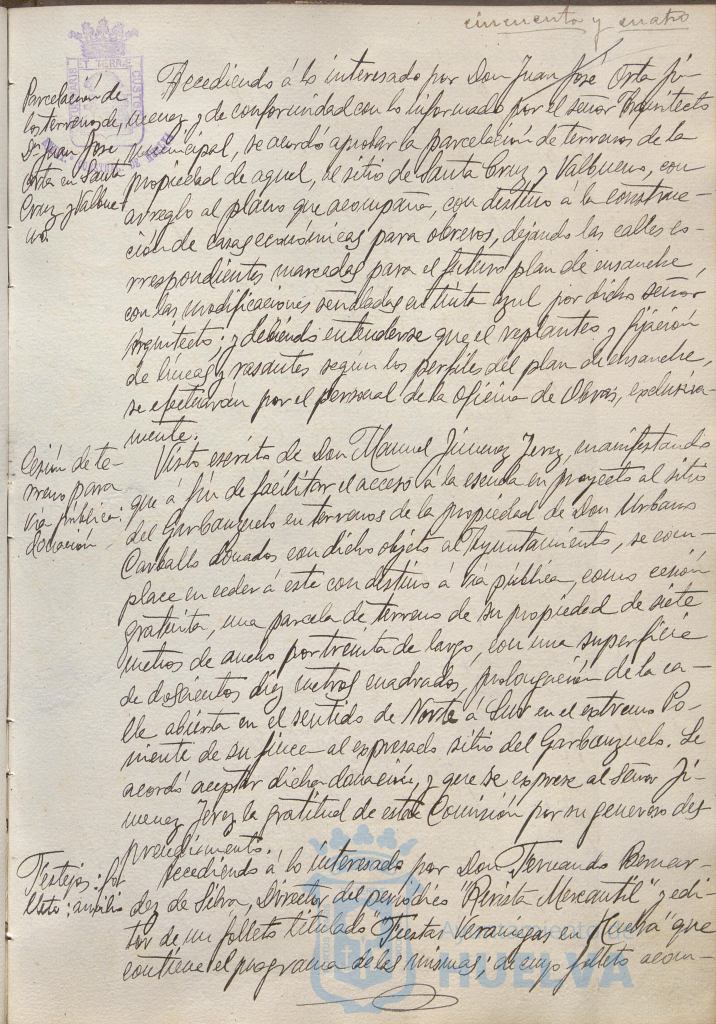 cincuenta y cuatro
Parcelación de
los terrenos de
Dn. Juan José
Orta en Santa
Cruz y Valbue-
no.
Accediendo á lo interesado por Don Juan José Orta Ji-
menez, y de conformidad con lo informado por el señor Arquitecto
municipal, se acordó aprobar la parcelación de terrenos de la
propiedad de aquel, al sitio de Santa Cruz y Valbueno, con
arreglo al plano que acompaña, con destino á la construc-
ción de casas económicas para obreros, dejando las calles co-
rrespondientes marcadas para el futuro plan de ensanche,
con las modificaciones señaladas en tinta azul por dicho señor
Arquitecto; y debiendo entenderse que el replanteo y fijación
de líneas y rasantes según los perfiles del plan de ensanche,
se efectuarán por el personal de la Oficina de Obras, exclusiva-
mente.
Cesión de te-
rreno para
vía pública:
donación
Visto escrito de Don Manuel Jimenez Jerez, manifestando
que á fin de facilitar el acceso á la escuela en proyecto al sitio
del Garbanzuelo en terrenos de la propiedad de Don Urbano
Carballo donados con dicho objeto al Ayuntamiento, se com-
place en ceder á este con destino á vía pública, como cesión
gratuita, una parcela de terreno de su propiedad de siete
metros de ancho por treinta de largo, con una superficie
de doscientos diez metros cuadrados, prolongación de la ca-
lle abierta en el sentido de Norte á Sur en el extremo Po-
niente de su finca al expresado sitio del Garbanzuelo. Se
acordó aceptar dicha donación, y que se exprese al Señor Ji-
menez Jerez la gratitud de esta Comisión por su generoso des
prendimiento.
Festejos: fo-
lleto: auxilio
Accediendo á lo interesado por Don Fernando Bernar-
dez de Silva, Director del periódico "Revista Mercantil" y edi-
tor de un folleto titulado "Fiestas Veraniegas en Huelva" que
contiene el programa de las mismas; de cuyo folleto acom-
Ayuntamiento
HUELVA